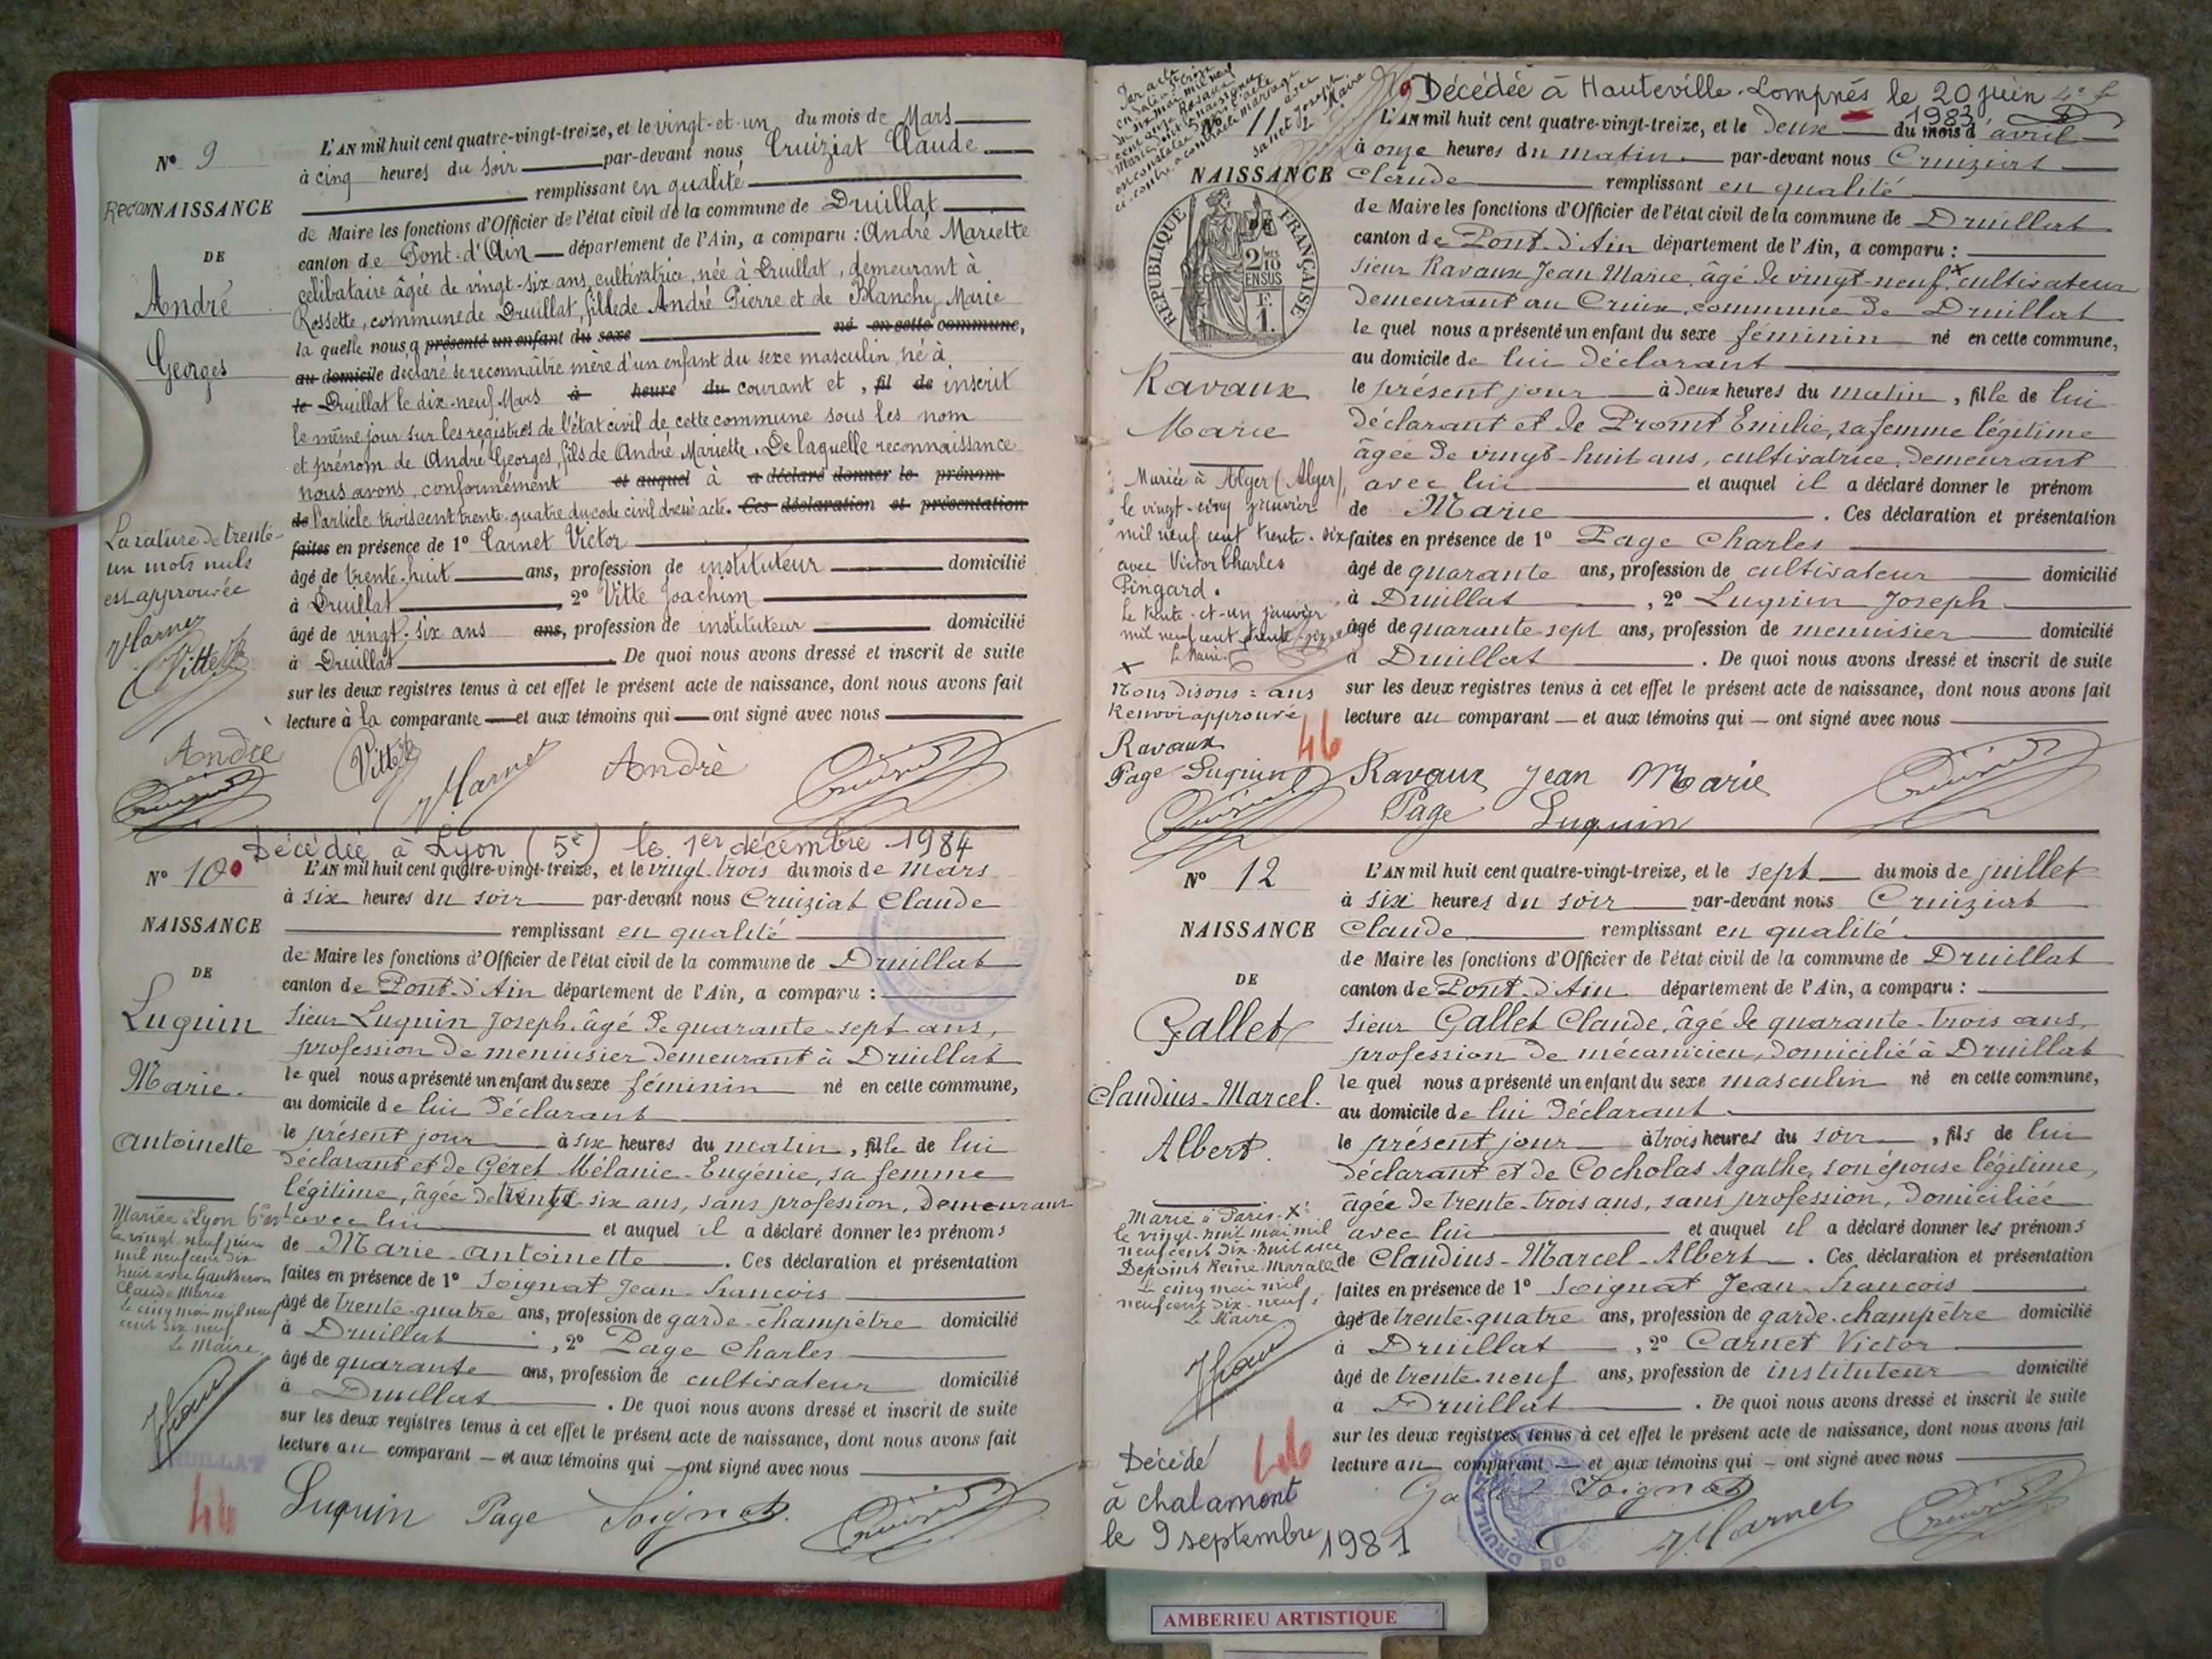 L'AN mil huit cent quatre-vingt-treize, et le vingt-et-un du mois de Mars
N° 9
à cinq heures du soir par-devant nous Cruiziat Claude
remplissant en qualité
RecoNNAISSANCE
de Maire les fonctions d'Officier de l'état civil de la commune de Druillat
DE
canton de Pont-d'Ain département de l'Ain, a comparu : André Mariette
célibataire âgée de vingt-six ans, cultivatrice, née à Druillat, demeurant à
André
Rossette, commune de Druillat, fille de André Pierre et de Blanchy Marie
la quelle nous a présenté un enfant du sexe né en cette commune,
Georges
au domicile declaré se reconnaître mère d'un enfant du sexe masculin né à
le Druillat le dix-neuf Mars à heure du courant et , fil de inscrit
le même jour sur les registres de l'état civil de cette commune sous les nom
et prénom de André Georges, fils de André Mariette. De laquelle reconnaissance
nous avons, conformément et auquel à a déclaré donner le prénom
de l'article trois cent trente-quatre du code civil dressé acte. Ces déclaration et présentation
La rature de trente-
un mots nuls
est approuvée
faites en présence de 1° Carnet Victor
âgé de trente-huit ans, profession de instituteur domicilié
à Druillat , 2° Vitte Joachim
âgé de vingt-six ans ans, profession de instituteur domicilié
VCarnet
Vitte J
à Druillat . De quoi nous avons dressé et inscrit de suite
sur les deux registres tenus à cet effet le présent acte de naissance, dont nous avons fait
lecture à la comparante et aux témoins qui ont signé avec nous
André Vitte J VCarnet André Cruiziat
Cruiziat
Décédée à Lyon (5e) le 1er décembre 1984
N° 10
L'AN mil huit cent quatre-vingt-treize, et le vingt-trois du mois de Mars
à six heures du soir par-devant nous Cruiziat Claude
NAISSANCE
remplissant en qualité
de Maire les fonctions d'Officier de l'état civil de la commune de Druillat
DE
canton de Pont-d'Ain département de l'Ain, a comparu :
Luquin
sieur Luquin Joseph, âgé de quarante-sept ans,
profession de menuisier demeurant à Druillat
Marie.
le quel nous a présenté un enfant du sexe féminin né en cette commune,
au domicile de lui déclarant
Antoinette
le présent jour à six heures du matin, fille de lui
déclarant et de Géret Mélanie-Eugénie, sa femme
légitime, âgée de trente-six ans, sans profession, demeurant
avec lui et auquel il a déclaré donner les prénoms
Mariée à Lyon 6e
le vingt neuf juin
mil neuf cent dix
huit avec Gautheron
Claude Marie
Le cinq mai mil neuf
cent dix neuf
Le Maire,
de Marie-Antoinette . Ces déclaration et présentation
faites en présence de 1° Soignat Jean-Francois
âgé de trente-quatre ans, profession de garde-champêtre domicilié
à Druillat , 2° Page Charles
âgé de quarante ans, profession de cultivateur domicilié
à Druillat . De quoi nous avons dressé et inscrit de suite
sur les deux registres tenus à cet effet le présent acte de naissance, dont nous avons fait
lecture au comparant et aux témoins qui ont signé avec nous
DRUILLAT
46
Luquin Page Soignat Cruiziat
Décédée à Hauteville-Lompnés le 20 juin
1983
11
L'AN mil huit cent quatre-vingt-treize, et le deux du mois d'avril
à onze heures du matin par-devant nous Cruiziat
NAISSANCE
Claude remplissant en qualité
de Maire les fonctions d'Officier de l'état civil de la commune de Druillat
canton de Pont-d'Ain département de l'Ain, a comparu :
REPUBLIQUE FRANÇAISE
2/10
EN SUS
1F.
sieur Ravaux Jean Marie, âgé de vingt-neuf x cultivateur
demeurant au Cruix, commune de Druillat
le quel nous a présenté un enfant du sexe féminin né en cette commune,
au domicile de lui déclarant
Ravaux
le présent jour à deux heures du matin, fille de lui
Marie
déclarant et de Promt Emilie, sa femme légitime
âgée de vingt-huit ans, cultivatrice, demeurant
avec lui et auquel il a déclaré donner le prénom
Mariée à Alger (Alger),
le vingt-cinq janvier
mil neuf cent trente-six
avec Victor Charles
Pingard.
Le trente-et-un janvier
mil neuf cent trente-six
Le Maire.
de Marie . Ces déclaration et présentation
faites en présence de 1° Page Charles
âgé de quarante ans, profession de cultivateur domicilié
à Druillat , 2° Luquin Joseph
âgé de quarante-sept ans, profession de menuisier domicilié
à Druillat . De quoi nous avons dressé et inscrit de suite
x
Nous disons = ans
Renvoi approuvé
sur les deux registres tenus à cet effet le présent acte de naissance, dont nous avons fait
lecture au comparant et aux témoins qui ont signé avec nous
46
Ravaux
Page Luquin
Cruiziat
Ravaux Jean Marie Cruiziat
Page Luquin
N° 12
L'AN mil huit cent quatre-vingt-treize, et le sept du mois de juillet
à six heures du soir par-devant nous Cruiziat
NAISSANCE
Claude remplissant en qualité.
de Maire les fonctions d'Officier de l'état civil de la commune de Druillat
DE
canton de Pont-d'Ain département de l'Ain, a comparu :
Gallet
sieur Gallet Claude, âgé de quarante-trois ans,
profession de mécanicien, domicilié à Druillat
Claudius-Marcel.
le quel nous a présenté un enfant du sexe masculin né en cette commune,
au domicile de lui déclarant
Albert.
le présent jour à trois heures du soir , fils de lui
déclarant et de Cocholas Agathe, son épouse légitime,
âgée de trente-trois ans, sans profession, domiciliée
avec lui et auquel il a déclaré donner les prénoms
Marié à Paris-Xe
le vingt-huit mai mil
neuf cent dix-huit avec
Depoins Reine Marale
Le cinq mai mil
neuf cent dix-neuf.
Le Maire
de Claudius-Marcel-Albert . Ces déclaration et présentation
faites en présence de 1° Soignat Jean-Francois
âgé de trente-quatre ans, profession de garde-champêtre domicilié
à Druillat , 2° Carnet Victor
âgé de trente-neuf ans, profession de instituteur domicilié
à Druillat . De quoi nous avons dressé et inscrit de suite
sur les deux registres tenus à cet effet le présent acte de naissance, dont nous avons fait
lecture au comparant et aux témoins qui ont signé avec nous
46
Décédé
à chalamont
le 9 septembre 1981
Gallet Soignat
VCarnet Cruiziat
DRUILLAT
AMBERIEU ARTISTIQUE